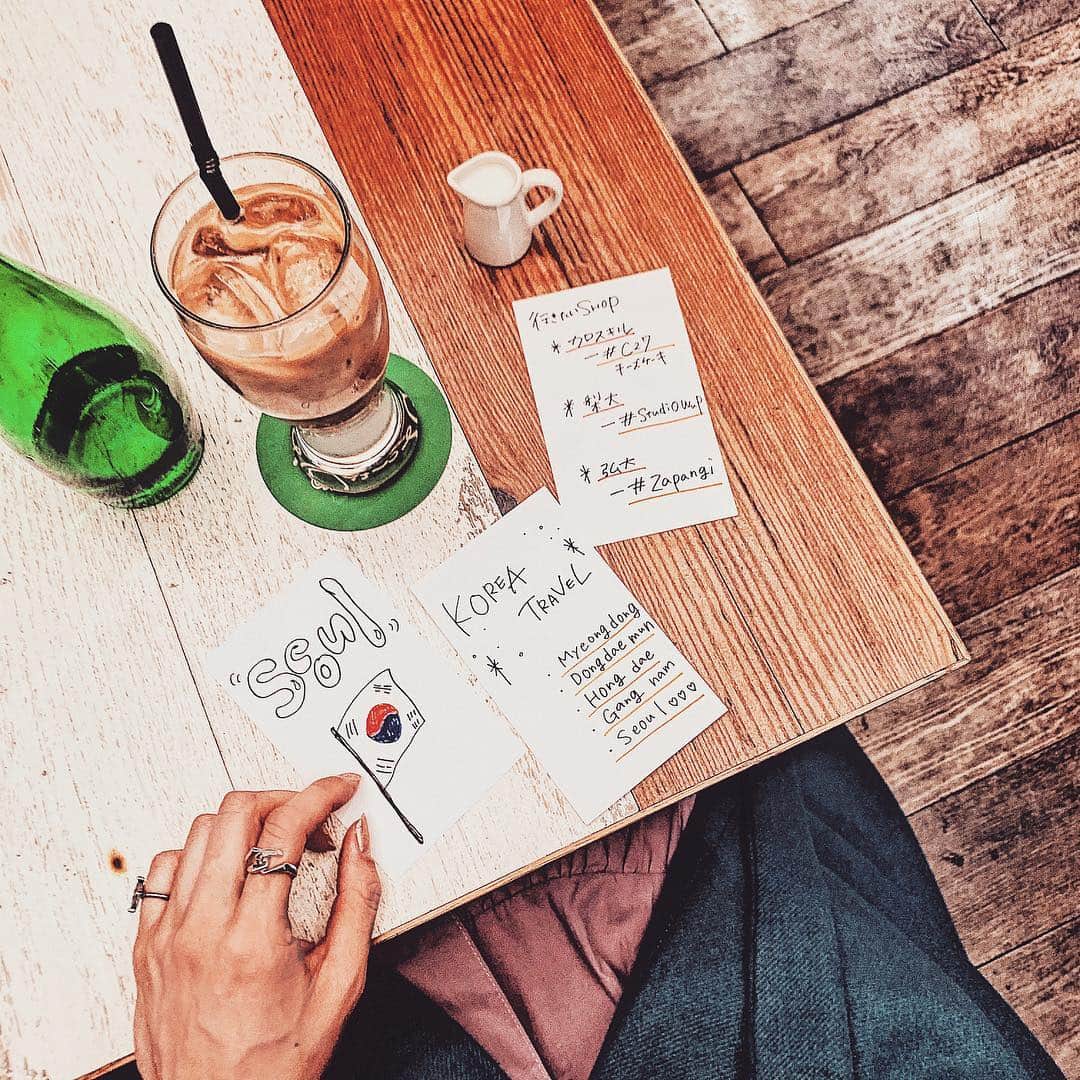 行きたいSHOP
* カロスキル
ー#C27
チーズケーキ
* 梨大
ー#StudiOwap
* 弘大
ー#Zapangi
KOREA
TRAVEL
· Myeongdong
· Dongdaemun
· Hong dae
· Gang nam
· Seoul ♡♡♡
"Seoul"